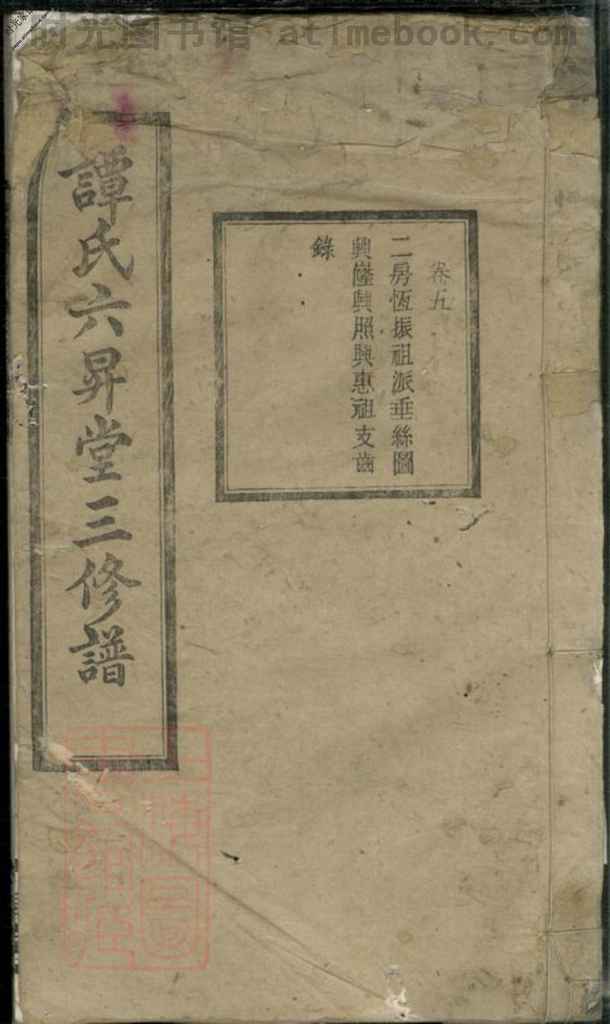 时光图书馆 atimebook.com
卷五
二房恆振祖派垂絲圖
興隆興照興惠祖支齒
錄
譚氏六昇堂三修譜